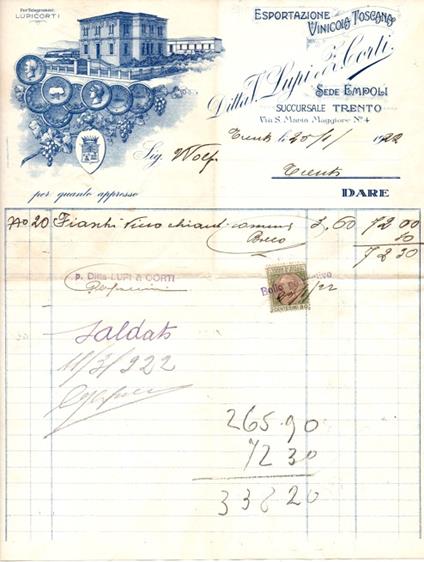 Per Telegrammi:
LUPICORTI
ESPORTAZIONE
VINICOLA TOSCANA
Ditta V. Lupi & R. Corti
SEDE EMPOLI
SUCCURSALE TRENTO
Via S. Maria Maggiore No 4
Trento li 20/1/1922
Sig. Wolf
Trento
per quanto appresso
DARE
No 20 Fiaschi Vino chianti comune 3,60 72 00
Bollo 30
72 30
p. Ditta LUPI & CORTI
Bollo
20/1/22
Saldato
11/3/922
265.90
72 30
338 20